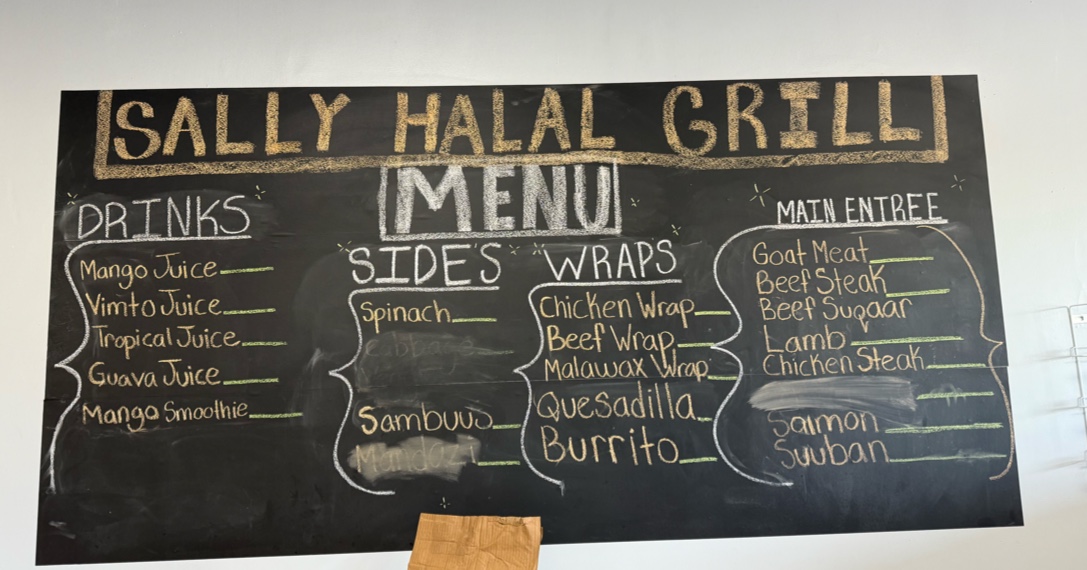 SALLY HALAL GRILL
MENU
DRINKS
Mango Juice
Vimto Juice
Tropical Juice
Guava Juice
Mango Smoothie
SIDE'S
Spinach
Cabbage
Sambuus
Mandazi
WRAP'S
Chicken Wrap
Beef Wrap
Malawax Wrap
Quesadilla
Burrito
MAIN ENTREE
Goat Meat
Beef Steak
Beef Suqaar
Lamb
Chicken Steak
Salmon
Suuban